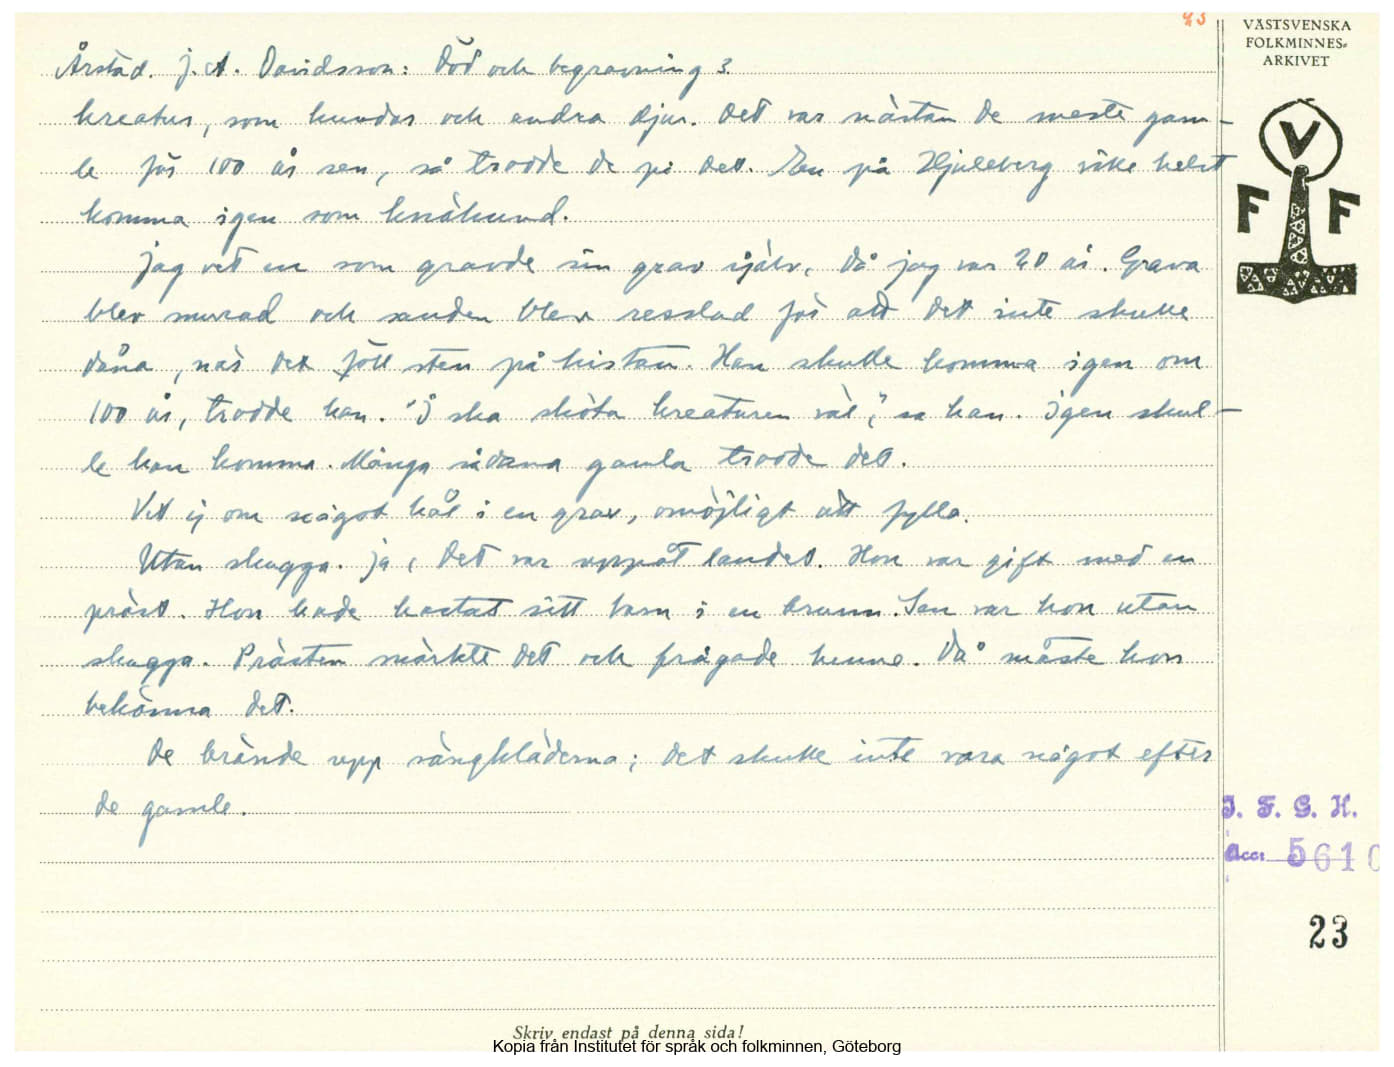 23
VÄSTSVENSKA
FOLKMINNES-
ARKIVET
Årstad. J. A. Davidsson: Död och begravning 3.
kreatur, som hundar och andra djur. Det var nästan de meste gam-
le för 100 år sen, så trodde de på det. En på Hjuleberg ville helst
komma igen som knähund.
Jag vet en som gravde sin grav själv, då jag var 20 år. Grava
blev murad och sanden blev resslad för att det inte skulle
dåna, när det föll sten på kistan. Han skulle komma igen om
100 år, trodde han. "I ska sköta kreaturen väl," sa han. Igen skul-
le han komma. Många sådana gamla trodde det.
Vet ej om något hål i en grav, omöjligt att fylla.
Utan skugga. Ja, det var uppåt landet. Hon var gift med en
präst. Hon hade kastat sitt barn i en brunn. Sen var hon utan
skugga. Prästen märkte det och frågade henne. Då måste hon
bekänna det.
De brände upp sängkläderna; det skulle inte vara något efter
de gamle.
V
F F
I. F. G. H.
Acc: 5610
23
Skriv endast på denna sida!
Kopia från Institutet för språk och folkminnen, Göteborg